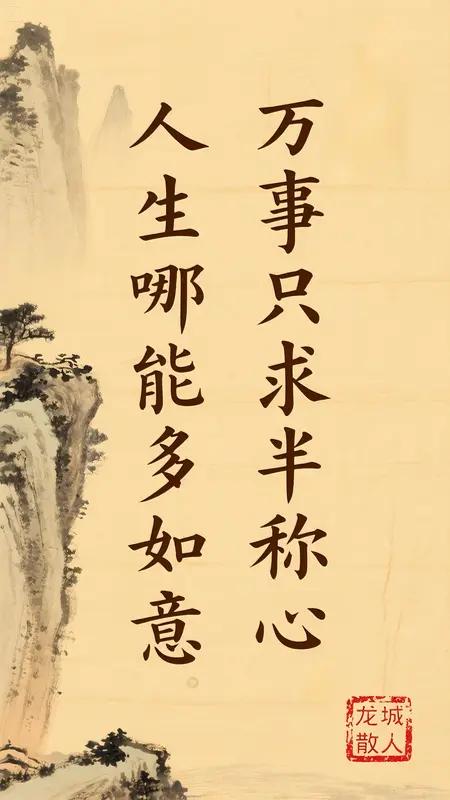 人生哪能多如意
万事只求半称心
龙城
散人